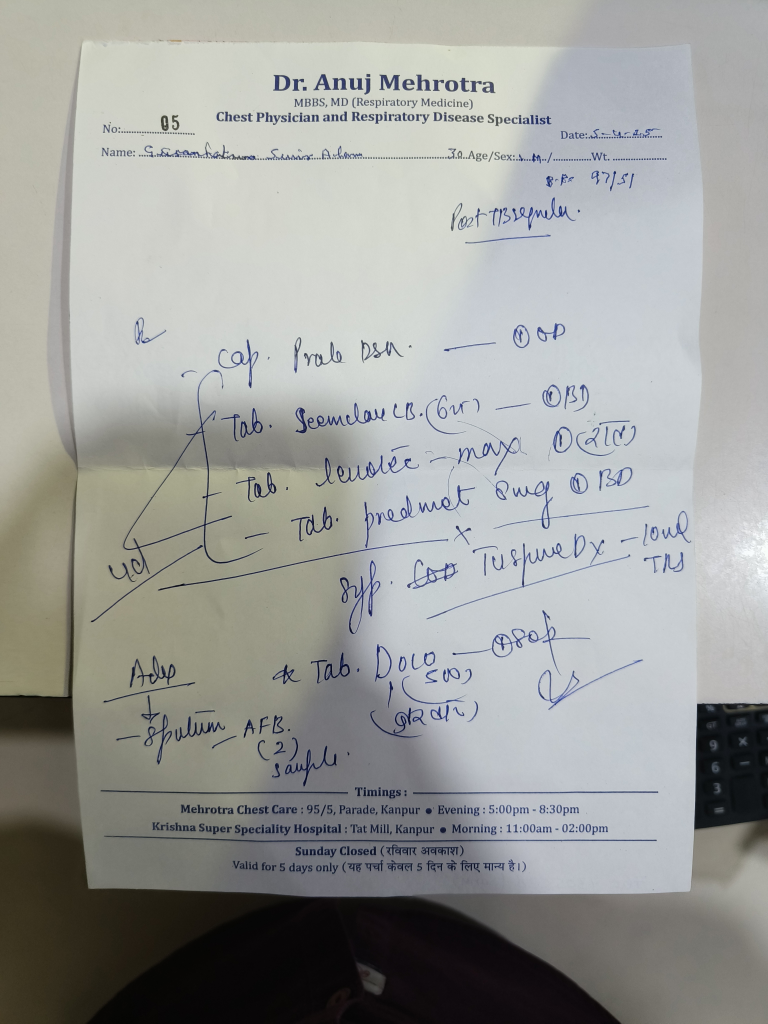 Dr. Anuj Mehrotra
MBBS, MD (Respiratory Medicine)
Chest Physician and Respiratory Disease Specialist
No: 05
Date: 5-4-25
Name: Alam 30 Age/Sex: M / Wt.
97/51
Post TB sequelae.
Rx
- Cap. DSR. — ① OD
- Tab. CB. (625) — ① BD
- Tab. - max ① (रात)
- Tab. predmet 8mg ① BD
x
Syp. Dx - 10ml TDS
Adv
* Tab. Dolo — ① SOS
(500)
(बुखार)
- Sputum - AFB.
(2)
Sample.
Timings :
Mehrotra Chest Care : 95/5, Parade, Kanpur ● Evening : 5:00pm - 8:30pm
Krishna Super Speciality Hospital : Tat Mill, Kanpur ● Morning : 11:00am - 02:00pm
Sunday Closed (रविवार अवकाश)
Valid for 5 days only (यह पर्चा केवल 5 दिन के लिए मान्य है।)
9 ×
6 −
3
=